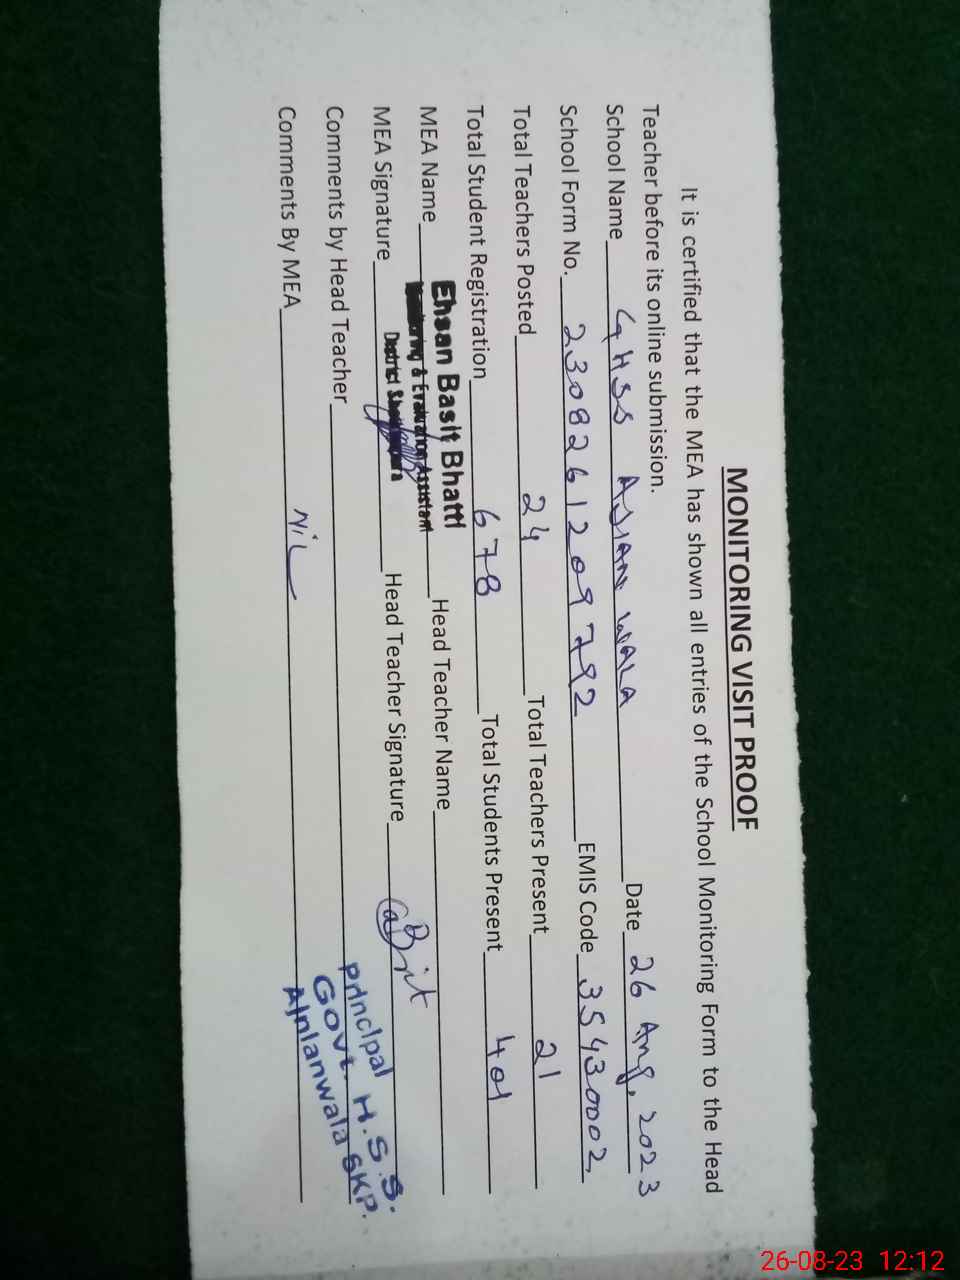 MONITORING VISIT PROOF
It is certified that the MEA has shown all entries of the School Monitoring Form to the Head
Teacher before its online submission.
School Name GHSS AJIAN WALA Date 26 Aug, 2023
School Form No. 2308261209792 EMIS Code 35430002
Total Teachers Posted 24 Total Teachers Present 21
Total Student Registration 678 Total Students Present 401
MEA Name Ehsan Basit Bhatti Head Teacher Name
Monitoring & Evaluation Assistant
District Sheikhupura
MEA Signature Head Teacher Signature
Comments by Head Teacher
Principal
Govt. H.S.S.
Ajnianwala SKP.
Comments By MEA Nil
26-08-23 12:12